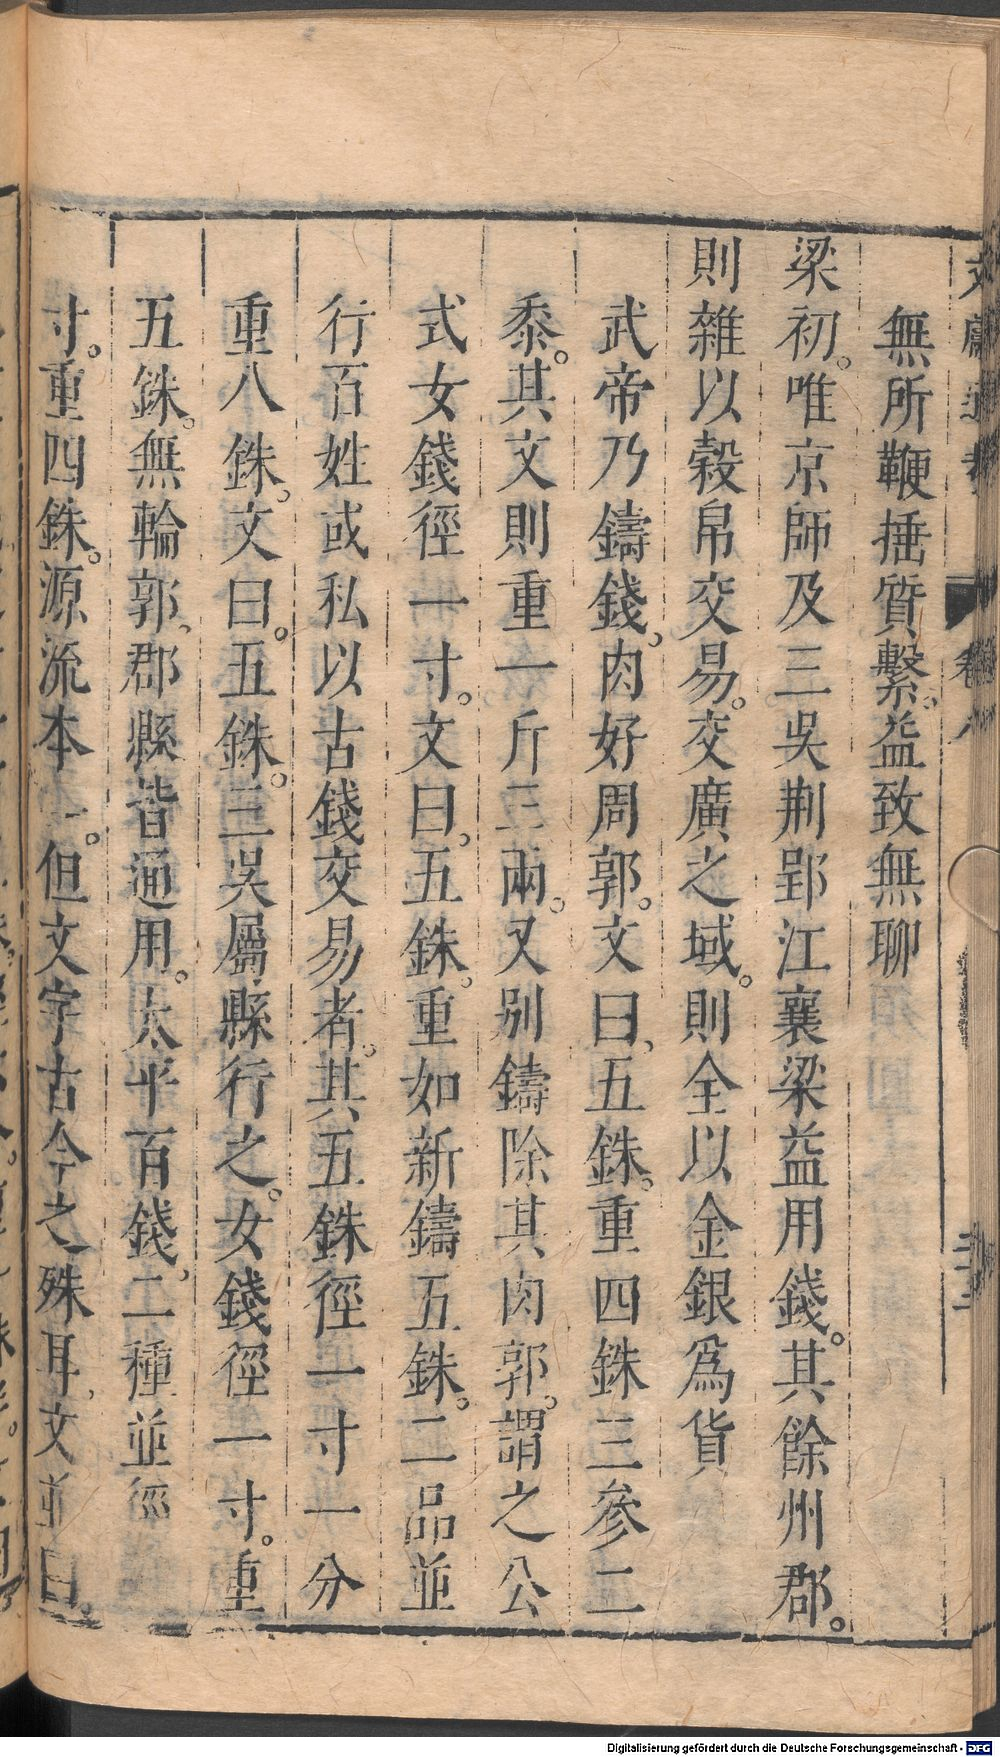 無所鞭捶質繫。益致無聊
梁初。唯京師及三吳荆郢江襄梁益用錢。其餘州郡。
則雜以榖帛交易。交廣之域。則全以金銀爲貨
武帝乃鑄錢、肉好周郭。文曰、五銖。重四銖三參二
黍。其文則重一斤三兩。又别鑄除其肉郭。謂之公
式女錢徑一寸。文曰、五銖。重如新鑄五銖。二品並
行百姓或私以古錢交易者。其五銖徑一寸一分
重八銖、文曰。五銖。三吳屬縣行之。女錢徑一寸。重
五銖。無輪郭、郡縣皆通用。太平百錢、二種並徑
寸。重四銖。源流本一。但文字古今之殊耳、文並曰、
卷八
Digitalisierung gefördert durch die Deutsche Forschungsgemeinschaft - DFG